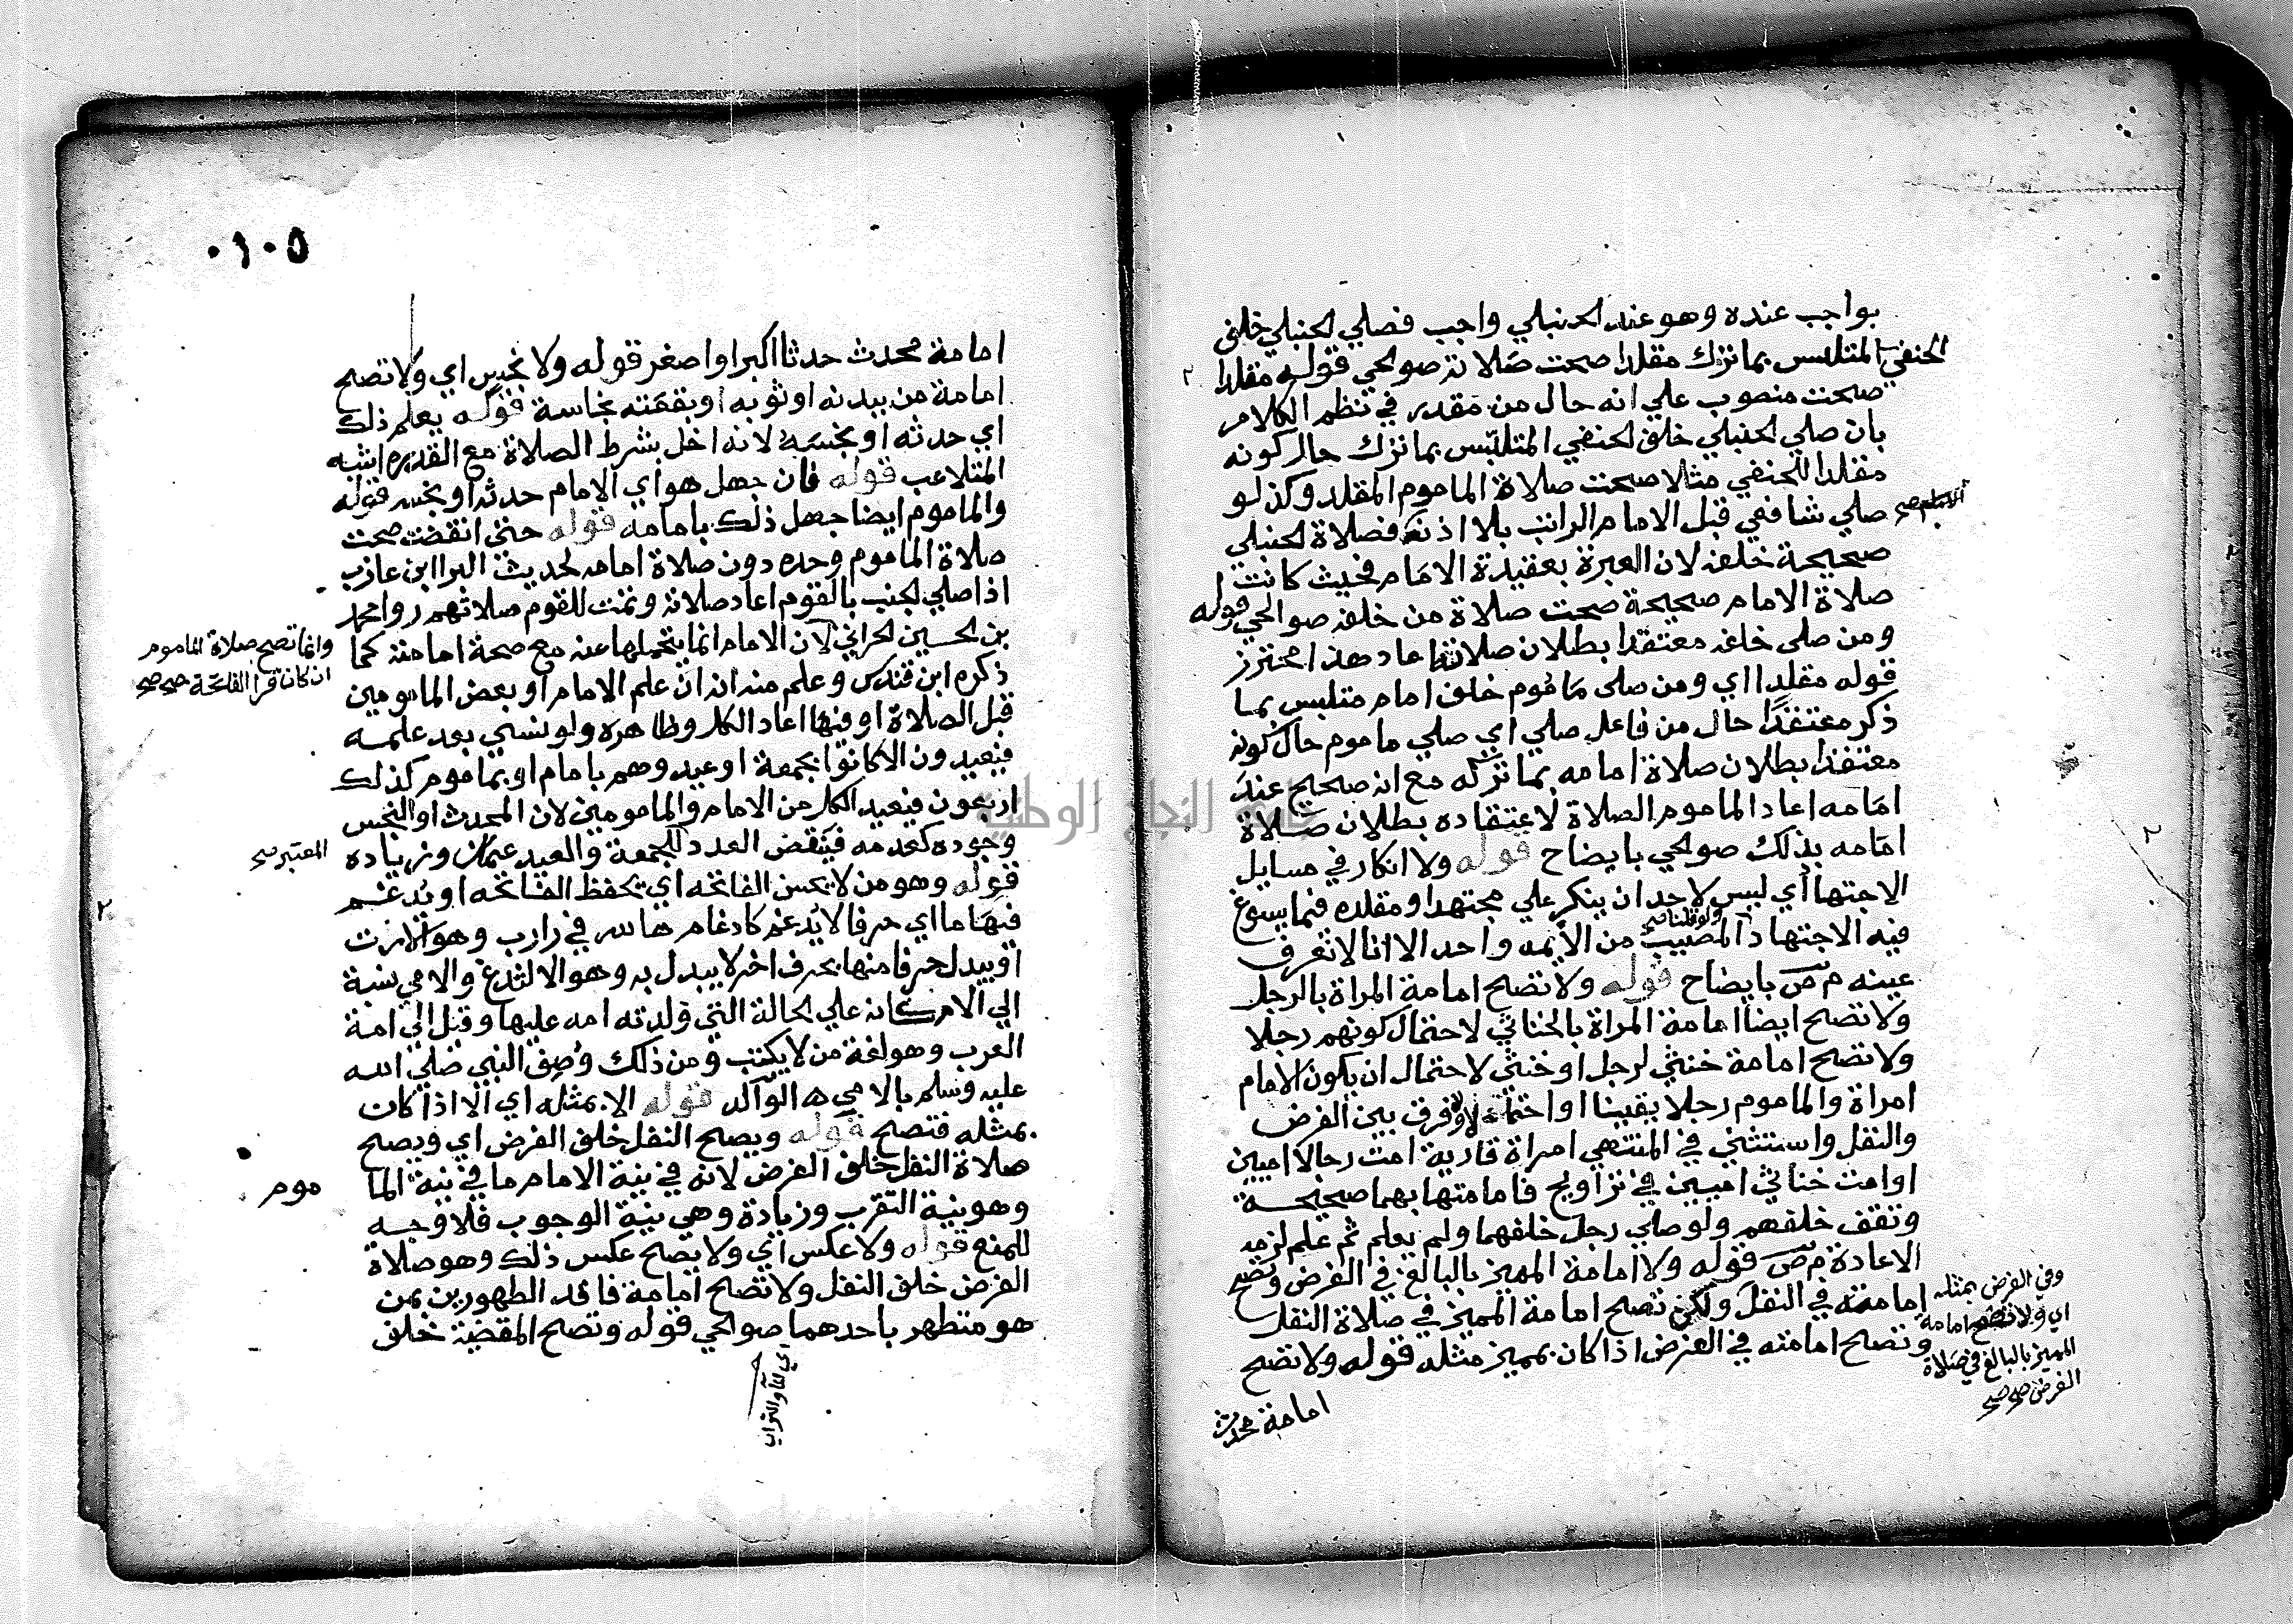 بواجب عنده وهو عند الحنبلي واجب فصلي الحنبلي خلف
الحنفي المتلبس بما ترك مقلدا صحت صلاته صوالحي قوله مقلدا
صحت منصوب علي انه حال من مقدر في نظم الكلام
بان صلي الحنبلي خلف الحنفي المتلبس بما ترك حال كونه
مقلدا للحنفي مثلا صحت صلاة الماموم المقلد وكذا لو
صلي شافعي قبل الامام الراتب بلا اذنه فصلاة الحنبلي
صحيحة خلفه لان العبرة بعقيدة الامام فحيث كانت
صلاة الامام صحيحة صحت صلاة من خلفه صوالحي قوله
ومن صلي خلفه معتقدا بطلان صلاته اعاد هذا محترز
قوله مقلدا اي ومن صلي ماموم خلف امام متلبس بما
ذكر معتقدا حال من فاعل صلي اي صلي ماموم حال كونه
معتقدا بطلان صلاة امامه بما تركه مع انه صحيح عند
امامه اعاد الماموم الصلاة لاعتقاده بطلان صلاة
امامه بذلك صوالحي بايضاح قوله ولا انكار في مسايل
الاجتهاد اي ليس لاحد ان ينكر علي مجتهد او مقلده فيما يسوغ
ولو قلنا صح
فيه الاجتهاد المصيب من الايمه واحد الا انا لا نعرف
عينه م ص بايضاح قوله ولا تصح امامة المراة بالرجل
ولا تصح ايضا امامة المراة بالخناثي لاحتمال كونهم رجلا
ولا تصح امامة خنثي لرجل او خنثي لاحتمال ان يكون الامام
امراة والماموم رجلا يقينا او احتمالا ولا فرق بين الفرض
والنفل واستثني في المنتهي امراة قارية امت رجالا اميين
او امت خناثي اميين في تراويح فامامتها بهما صحيحة
وتقف خلفهم ولو صلي رجل خلفهما ولم يعلم ثم علم لزمه
الاعادة م ص قوله ولا امامة المميز بالبالغ في الفرض وتصح
امامته في النفل ولكن تصح امامة المميز في صلاة النفل
وتصح امامته في الفرض اذا كان بمميز مثله قوله ولا تصح
وفي الفرض بمثله
اي ولا تصح امامة
المميز بالبالغ في صلاة
الفرض صح صح
امامة محدث
٠١٠٥
امامة محدث حدثا اكبر او اصغر قوله ولا نجس اي ولا تصح
امامة من ببدنه او ثوبه او بقعته نجاسة قوله يعلم ذلك
اي حدثه او نجسه لانه اخل بشرط الصلاة مع القدره اشبه
المتلاعب قوله فان جهل هو اي الامام حدثه او نجسه قوله
والماموم ايضا جهل ذلك بامامه قوله حتي انقضت صحت
صلاة الماموم وحده دون صلاة امامه لحديث البرا ابن عازب
اذا صلي الجنب بالقوم اعاد صلاته وتمت للقوم صلاتهم رواه محمد
بن الحسين الحراني لان الامام انما يتحملها عنه مع صحة امامته كما
وانما تصح صلاة الماموم
ان كان قرا الفاتحة صح صح
ذكره ابن قندس وعلم منه انه ان علم الامام او بعض المامومين
قبل الصلاة او فيها اعاد الكل وظاهره ولو نسي بعد علمه
فيعيدون الا كانوا بجمعة او عيد وهم بامام او بماموم كذلك
اربعون فيعيد الكل من الامام والمامومين لان المحدث او النجس
وجوده كعدمه فينقض العدد للجمعة والعيد عثمان وزيادة
المعتبر صح
قوله وهو من لا يحسن الفاتحه اي يحفظ الفاتحه او يدغم
فيها ما اي حرفا لا يدغم كادغام هاء لله في را رب وهو الارت
او يبدل حرفا منها بحرف اخر لا يبدل به وهو الالثغ والامي نسبة
الي الام كانه علي الحالة التي ولدته امه عليها وقيل الي امة
العرب وهو لغة من لا يكتب ومن ذلك وصف النبي صلي الله
عليه وسلم بالامي ه الوالد قوله الا بمثله اي الا اذا كان
بمثله فتصح قوله ويصح النفل خلف الفرض اي ويصح
صلاة النفل خلف الفرض لانه في نية الامام ما في نية الما موم
وهو نية التقرب وزيادة وهي نية الوجوب فلا وجه
للمنع قوله ولا عكس اي ولا يصح عكس ذلك وهو صلاة
الفرض خلف النفل ولا تصح امامة فاقد الطهورين بمن
هو متطهر باحدهما صوالحي قوله وتصح المقضية خلف
اي الماء والتراب